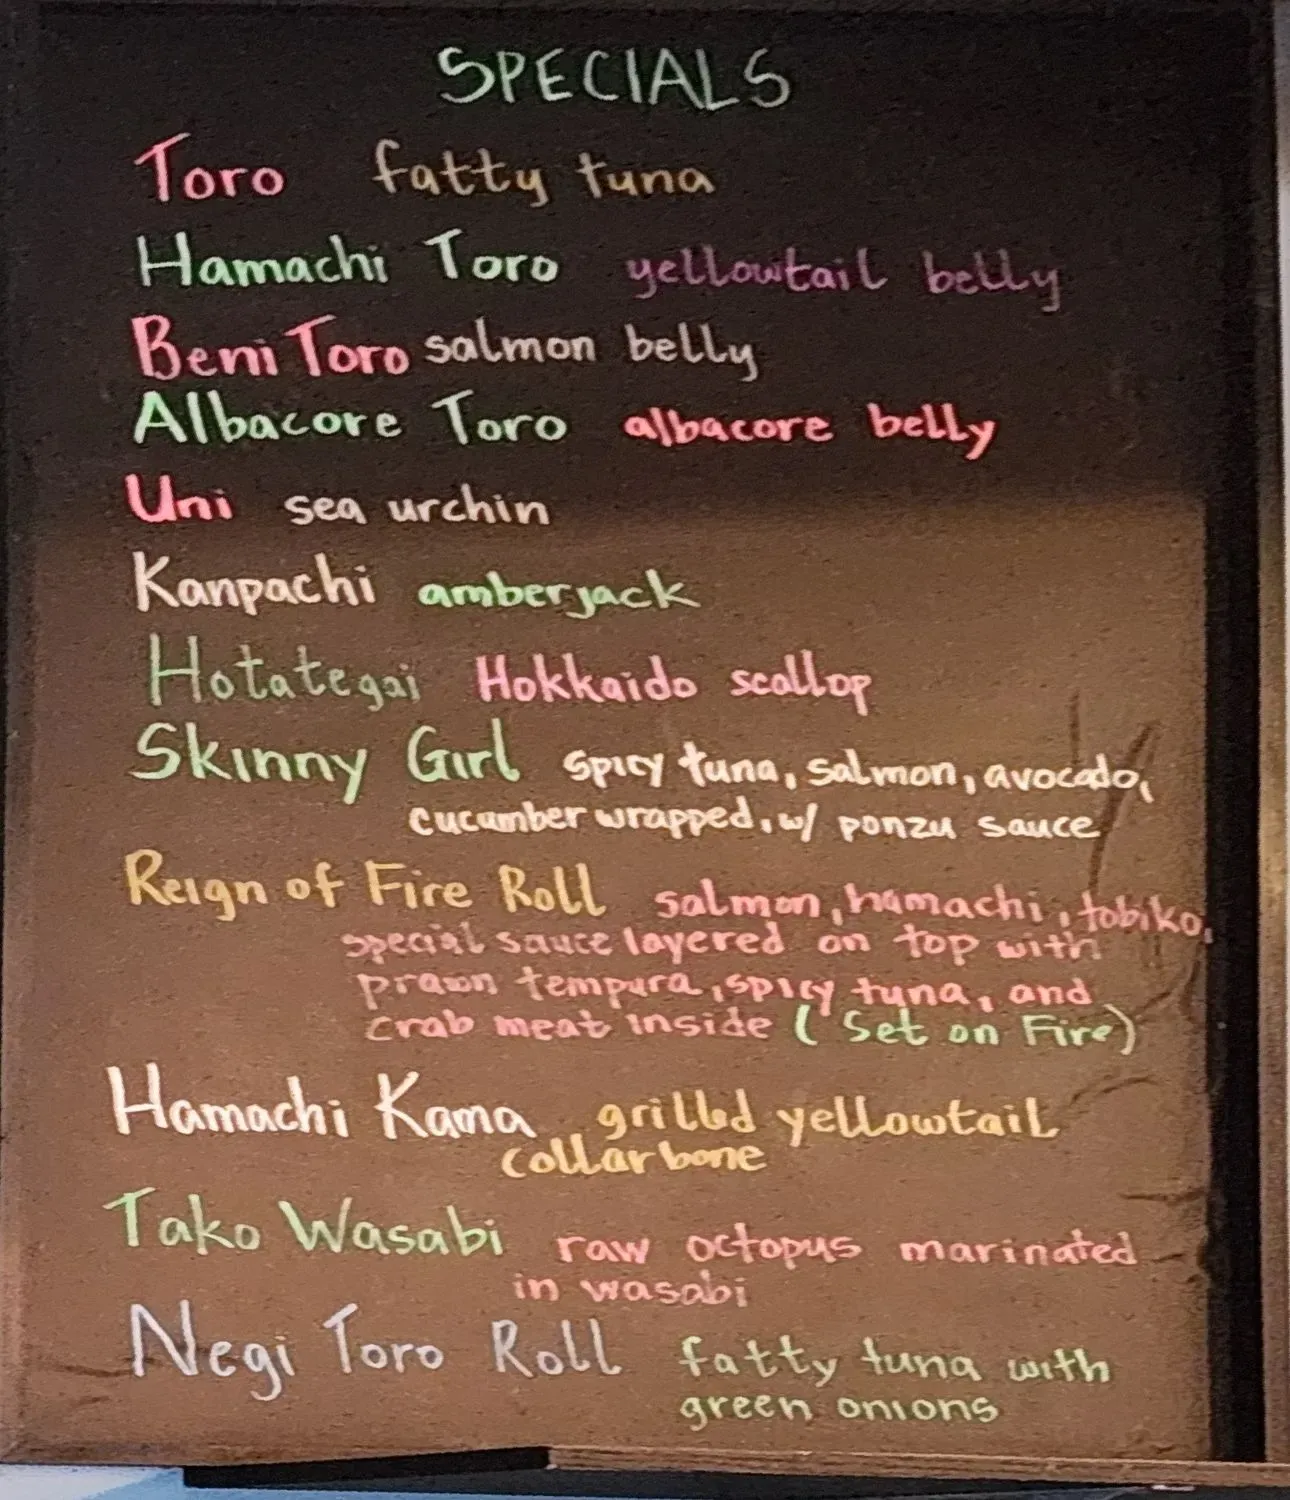 SPECIALS
Toro fatty tuna
Hamachi Toro yellowtail belly
Beni Toro salmon belly
Albacore Toro albacore belly
Uni sea urchin
Kanpachi amberjack
Hotategai Hokkaido scallop
Skinny Girl spicy tuna, salmon, avocado,
cucumber wrapped, w/ ponzu sauce
Reign of Fire Roll salmon, hamachi, tobiko,
special sauce layered on top with
prawn tempura, spicy tuna, and
crab meat inside (Set on Fire)
Hamachi Kama grilled yellowtail
collarbone
Tako Wasabi raw octopus marinated
in wasabi
Negi Toro Roll fatty tuna with
green onions